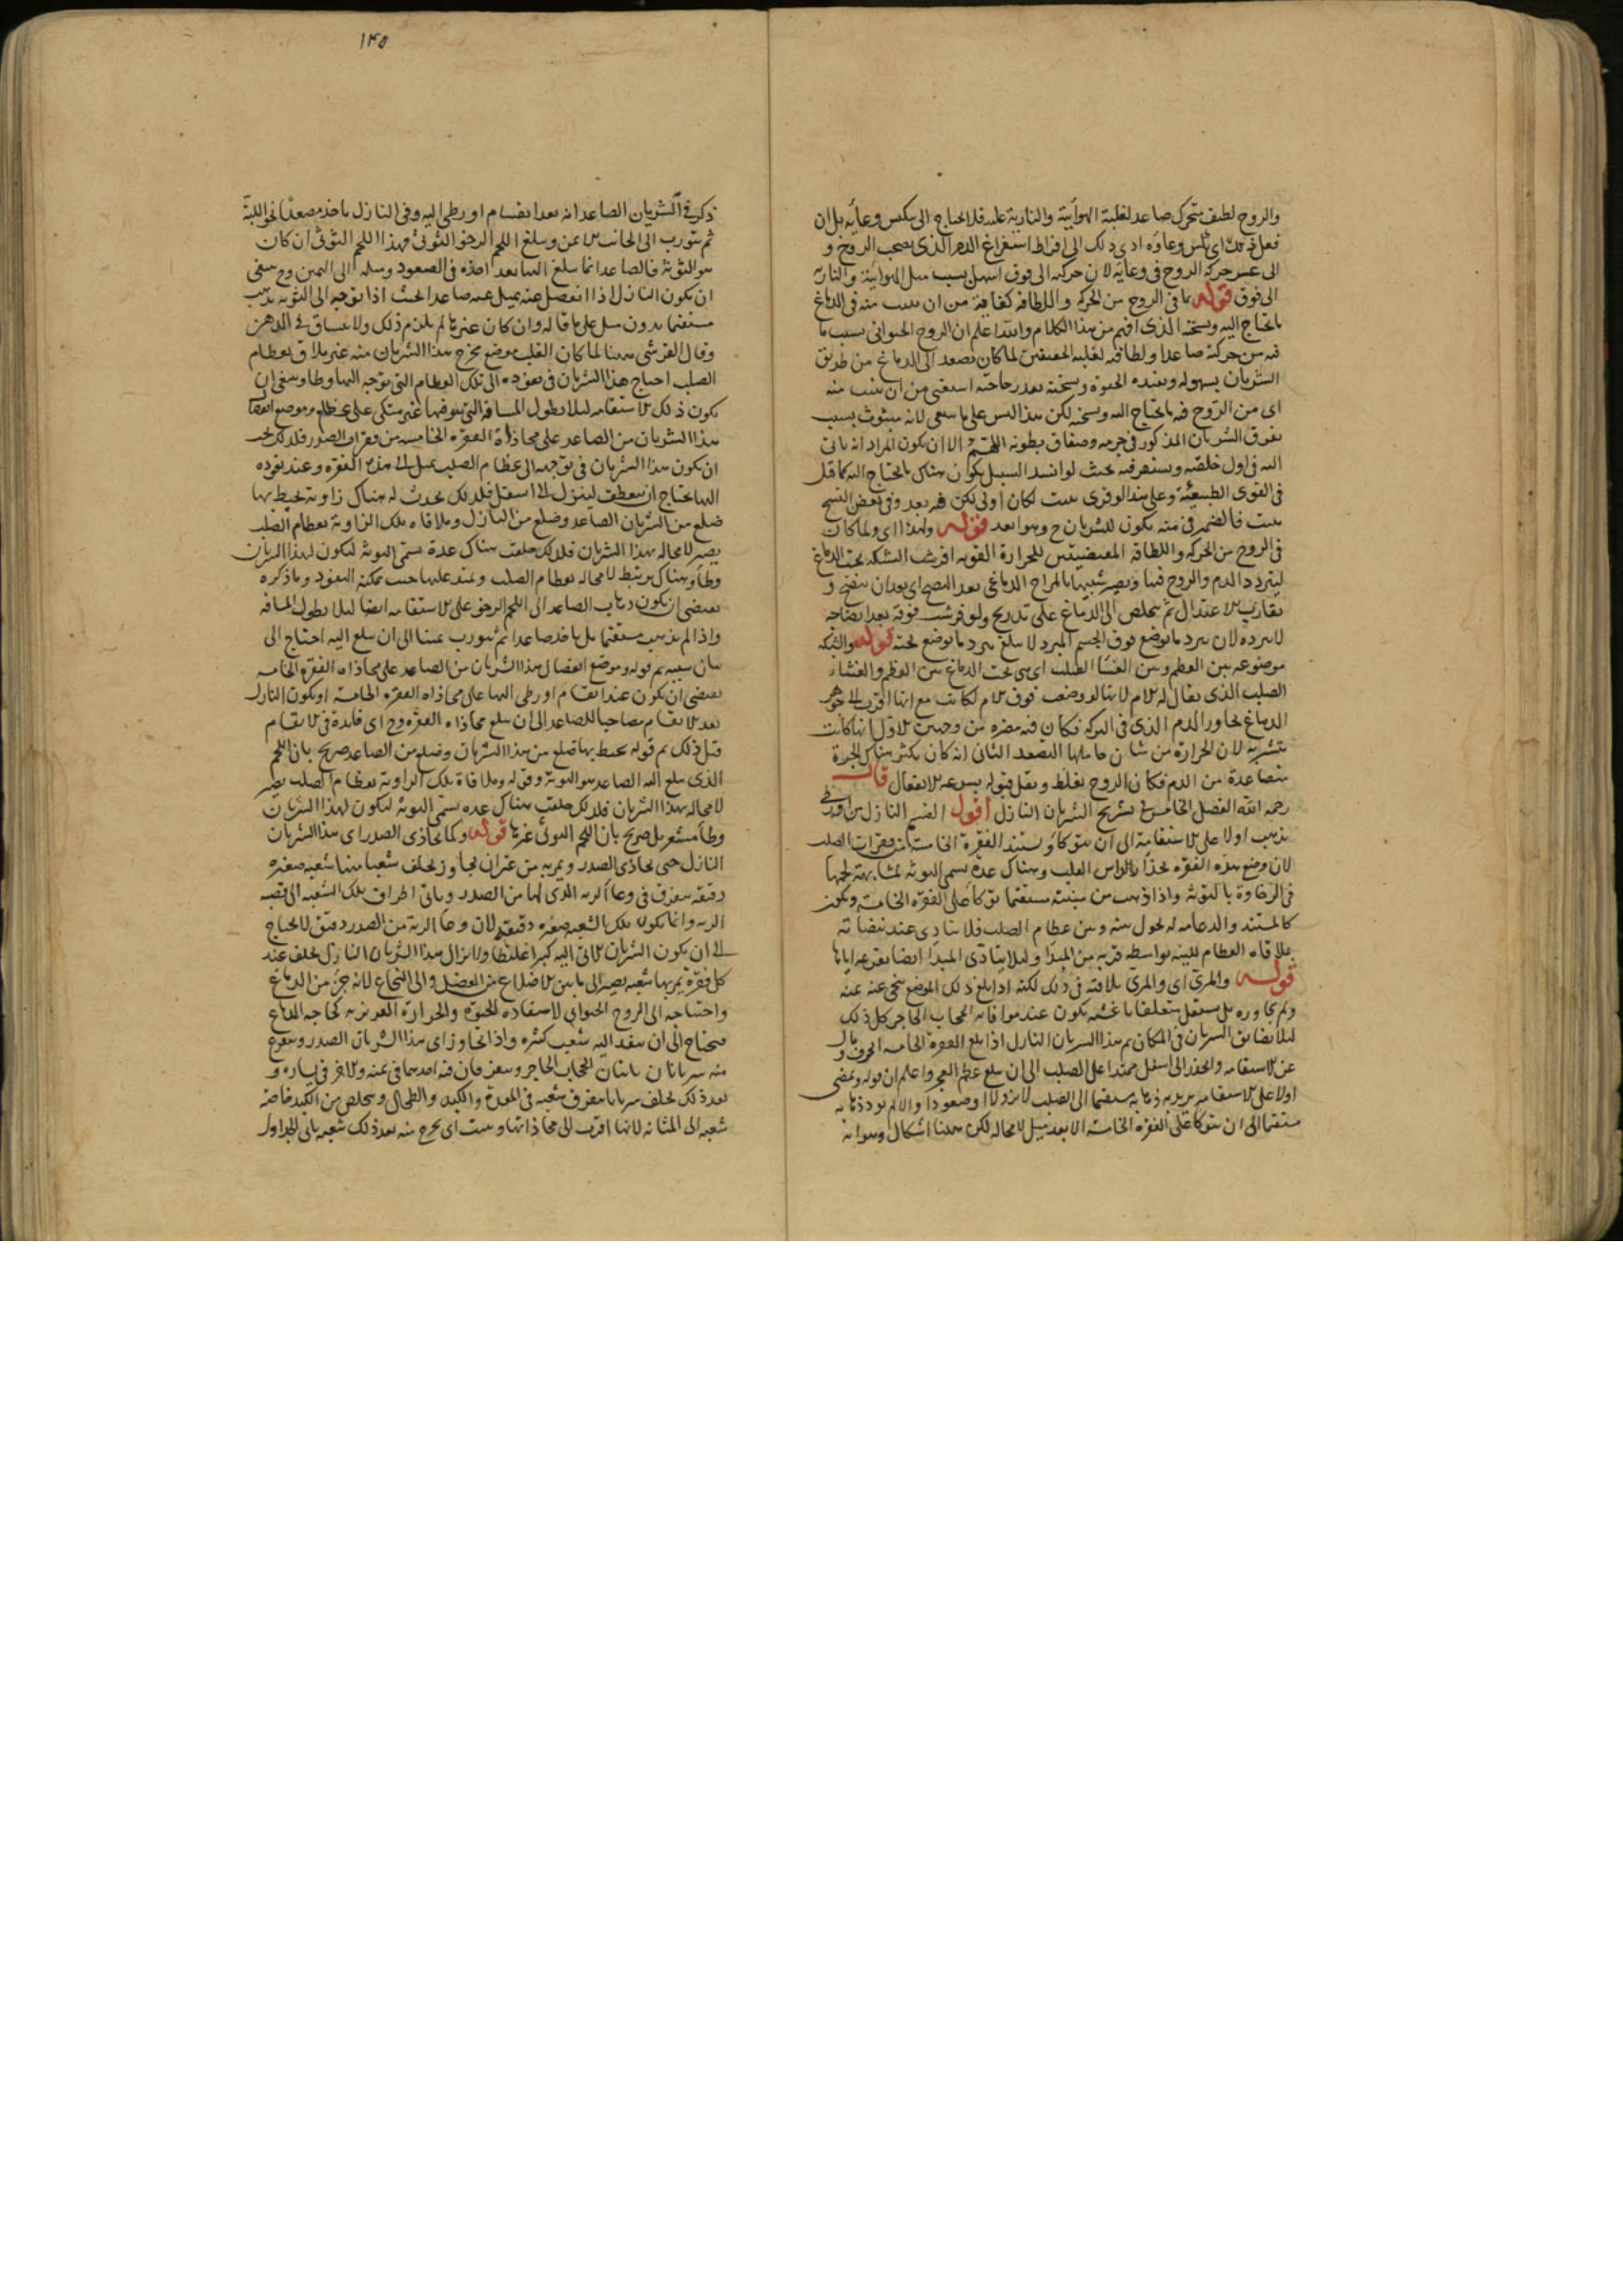 والروح لطيف متحرك صاعد لغلبة الهوائية والنارية عليه فلا يحتاج الى تنكيس وعائه بل ان
فعل ذلك اى نكس وعاؤه ادى ذلك الى افراط استفراغ الدم الذى يصحب الروح و
الى عسر حركة الروح فى وعائه لان حركته الى فوق اسهل بسبب ميل الهوائية والنارية
الى فوق قوله ما فى الروح من الحركة واللطافة كفاية من ان ينبث منه فى الدماغ
ما يحتاج اليه ويسخنه الذى افهم من هذا الكلام والله اعلم ان الروح الحيوانى بسبب ما
فيه من حركته صاعدا ولطافته لغلبة الخفيفين لما كان يصعد الى الدماغ من طريق
الشريان بسهولة ويفيده الحيوة ويسخنه بقدر حاجته استغنى من ان ينبث منه
اى من الروح فيه ما يحتاج اليه ويسخنه لكن هذا ليس على ما ينبغى لانه مبثوث بسبب
تفرق الشريان المذكور فى جرمه وصفاق بطونه اللهم الا ان يكون المراد انه ياتى
اليه فى اول خلقته ويستقر فيه بحيث لو انسد السبيل يكون هناك ما يحتاج اليه كما قيل
فى القوى الطبيعية وعلى هذا لو قرى ينبث لكان اولى لكن فيه بعد وفى بعض النسخ
ينبث فالضمير فى منه يكون للشريان ح وهو ابعد قوله ولهذا اى ولما كان
فى الروح من الحركة واللطافة المقتضيتين للحرارة القوية افرشت الشبكة تحت الدماغ
ليتردد الدم والروح فيها ويصير شبيها بالمزاج الدماغى بعد النضج اى بعد ان ينضج و
يقارب الاعتدال ثم يتخلص الى الدماغ على تدريج ولو فرشت فوقه بعد انضاجه
لا يبرده لان تبرد ما يوضع فوق الجسم المبرد لا يبلغ تبرد ما يوضع تحته قوله والشبكة
موضوعة بين العظم وبين الغشاء الصلب اى هى تحت الدماغ بين العظم والغشاء
الصلب الذى يقال له الام لانها لو وضعت فوق الام لكانت مع انها اقرب الى جوهر
الدماغ تجاور الدم الذى فى البركة فكان فيه مضرة من وجهين الاول انها كانت
تتشربه لان الحرارة من شان حاملها التصعد الثانى انه كان يكثر هناك الابخرة
متصاعدة من الدم فكان الروح يغلظ ويقل قبوله بسرعة الانفعال قال
رحمه الله الفصل الخامس فى تشريح الشريان النازل اقول القسم النازل من اورطى
يذهب اولا على الاستقامة الى ان يتوكا ويستند الفقرة الخامسة من فقرات الصلب
لان وضع هذه الفقرة بحذاء راس القلب وهناك غدة يسمى التوثة لمشابهته لحمها
فى الرخاوة بالتوثة واذا ذهب من منبته مستقيما توكا على الفقرة الخامسة ويكون
كالمستند والدعامة له يحول بينه وبين عظام الصلب فلا يتاذى عند نبضاته
بملاقاة العظام للينه بواسطة قربه من المبدا ولئلا يتاذى المبدا ايضا بقرعه اياها
قوله والمرئ اى والمرئ يلاقيه فى ذلك لكنه اذا بلغ ذلك الموضع تنحى عنه يمنة
ولم يجاوره بل يستقل متعلقا باغشية تكون عند موافاته الحجاب الحاجز كل ذلك
لئلا يضايق الشريان فى المكان ثم هذا الشريان النازل اذا بلغ الفقرة الخامسة انحرف ومال
عن الاستقامة وانحدر الى اسفل ممتدا على الصلب الى ان يبلغ عظم العجز واعلم ان قوله ويمضى
اولا على الاستقامة يريد به ذهابه مستقيما الى الصلب لا نزولا وصعودا والا لم يوذ ذهابه
مستقيما الى ان يتوكا على الفقرة الخامسة الا بعد ميل لا محالة لكن ههنا اشكال وهو انه
۱۴۵
ذكر فى الشريان الصاعد انه بعد انقسام اورطى اليه وفى النازل ياخذ مصعدا نحو اللبة
ثم يتورب الى الجانب الايمن ويبلغ اللحم الرخو التوثى فهذا اللحم التوثى ان كان
هو التوثة فالصاعد انما يبلغ اليها بعد اخذه فى الصعود وميله الى اليمين وح ينبغى
ان يكون النازل اذا انفصل عنه يميل عنه صاعدا بحيث اذا توجه الى التوثة يذهب
مستقيما بدون ميل على ما قاله وان كان غيرها لم يلزم ذلك ولا ينساق فى الذهن
وقال القرشى ههنا لما كان القلب موضع مخرج هذا الشريان منه غير ملاق لعظام
الصلب احتاج هذا الشريان فى نفوذه الى تلك العظام التى توجه اليها وطاء وينبغى ان
يكون ذلك الاستقامة لئلا يطول المسافة التى ينفذ فيها غير متكى على عظام وموضع انفصال
هذا الشريان من الصاعد على محاذاة الفقرة الخامسة من فقرات الصدر فلذلك يجب
ان يكون هذا الشريان فى توجهه الى عظام الصلب يميل الى هذه الفقرة وعند نفوذه
اليها يحتاج ان ينعطف لينزل الى اسفل فلذلك يحدث له هناك زاوية يحيط بها
ضلع من الشريان الصاعد وضلع من النازل وملاقاة تلك الزاوية بعظام الصلب
يضر لا محالة بهذا الشريان فلذلك خلقت هناك غدة تسمى التوثة ليكون لهذا الشريان
وطاء وهناك يرتبط لا محالة بعظام الصلب ويمتد عليها حيث يمكنه النفوذ وما ذكره
يقتضى ان يكون ذهاب الصاعد الى اللحم الرخو على الاستقامة ايضا لئلا يطول المسافة
واذا لم يذهب مستقيما بل ياخذ صاعدا ثم يتورب يمينا الى ان يبلغ اليه احتاج الى
بيان سببه ثم قوله وموضع انفصال هذا الشريان من الصاعد على محاذاة الفقرة الخامسة
يقتضى ان يكون عند انقسام اورطى اليهما على محاذاة الفقرة الخامسة او يكون النازل
بعد الانقسام مصاحبا للصاعد الى ان يبلغ محاذاة الفقرة وح اى فايدة فى الانقسام
قبل ذلك ثم قوله يحيط بها ضلع من هذا الشريان وضلع من الصاعد صريح بان اللحم
الذى يبلغ اليه الصاعد هو التوثة وقوله وملاقاة تلك الزاوية بعظام الصلب يضر
لا محالة بهذا الشريان فلذلك خلقت هناك غدة يسمى التوثة ليكون لهذا الشريان
وطاء مشعر بل صريح بان اللحم التوثى غيرها قوله وكما يحاذى الصدر اى هذا الشريان
النازل حين يحاذى الصدر ويمر به من غير ان يجاوز يخلف شعبا منها شعبة صغيرة
دقيقة يتفرق فى وعاء الرية الذى لها من الصدر وياتى اطراف تلك الشعبة الى قصبة
الرية وانما يكون تلك الشعبة صغيرة دقيقة لان وعاء الرية من الصدر دقيق لا يحتاج
الى ان يكون الشريان الاتى اليه كبيرا غليظا ولا يزال هذا الشريان النازل يخلف عند
كل فقرة يمر بها شعبة يصير الى ما بين الاضلاع من العضل والى النخاع لانه جزء من الدماغ
واحتياجه الى الروح الحيوانى لاستفادة الحيوة والحرارة الغريزية كحاجة الدماغ
فيحتاج الى ان ينفذ اليه شعب كثيرة واذا تجاوز اى هذا الشريان الصدر ويتفرع
منه شريانان ياتيان الحجاب الحاجز ويتفرقان فيه احدهما فى يمنه والاخر فى يساره و
بعد ذلك يخلف شريانا يتفرق شعبه فى المعدة والكبد والطحال ويتخلص من الكبد خاصة
شعبة الى المثانة لانها اقرب الى محاذاتها وينبث اى يخرج منه بعد ذلك شعبة ياتى الجداول